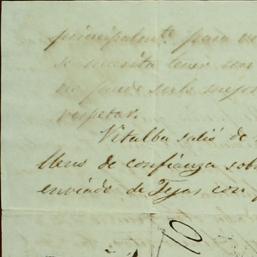 principalmte. para
se necesita tener con
no puede serle mejor
respetar.
Vitalba salió de
llevs de confianza sob
enviado de Tejas con